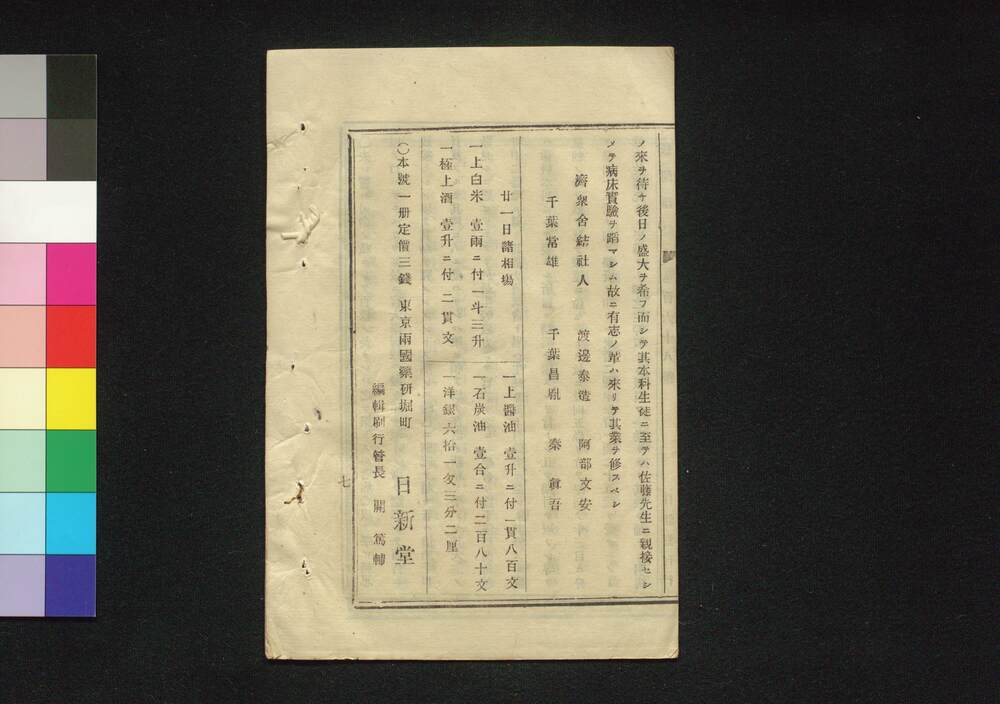 ノ來ヲ待ヤ後日ノ盛大ヲ希フ而シテ其本科生徒ニ至テハ佐藤先生ニ親接セシ
メテ病床實驗ヲ蹈マシム故ニ有志ノ輩ハ來リテ其業ヲ修スベシ
濟衆舍結社人 渡邊泰造 阿部文安
千葉常雄 千葉昌胤 秦 眞吾
廿一日諸相場
一上白米 壹兩ニ付一斗三升
一極上酒 壹升ニ付 二貫文
一上醬油 壹升ニ付一貫八百文
一石炭油 壹合ニ付二百八十文
一洋銀六拾一匁三分二厘
〇本號一册定價三錢 東京兩國藥研堀町 日新堂
編輯刷行管長 關 篤輔
七